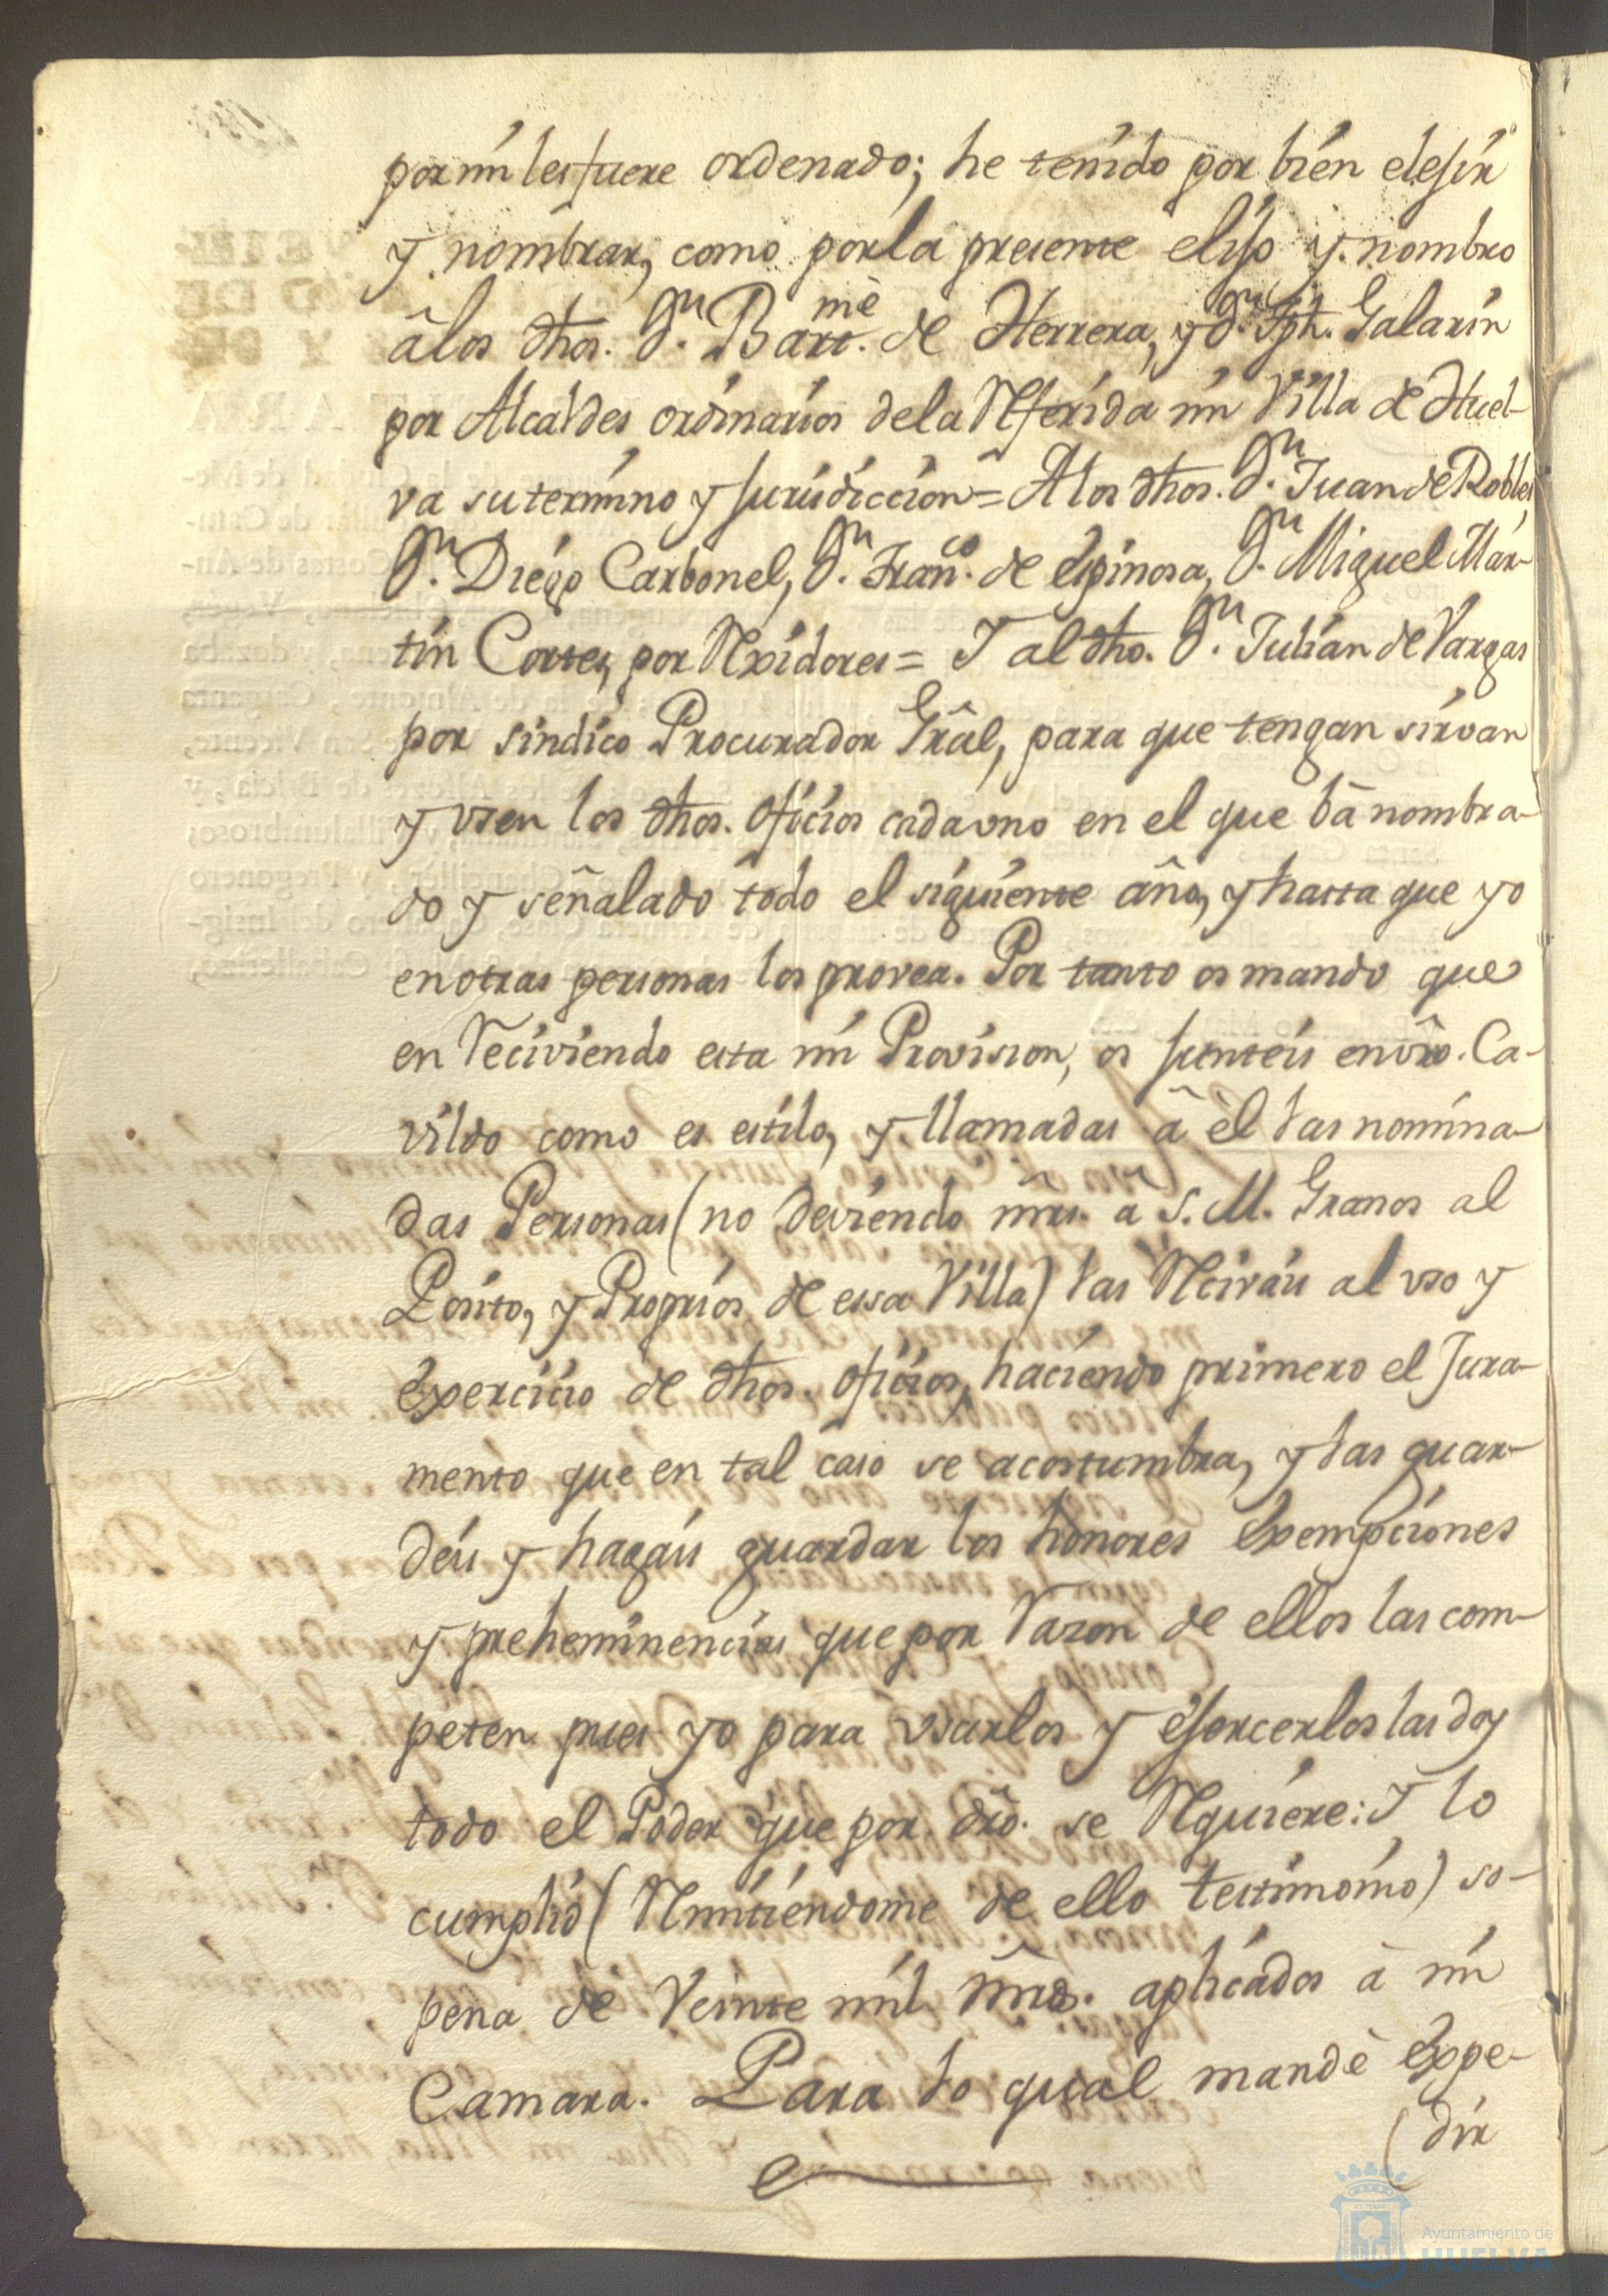 por mi les fuere ordenado; he tenido por bien elejir
y nombrar, como por la presente elijo y nombro
â los dhos. Dn. Barme. de Herrera, y Dn. Jph. Galarin
por Alcaldes ordinarios de la Referida mi Villa de Huel-
va su termino y jurisdiccion = A los dhos. Dn. Juan de Robles,
Dn. Diego Carbonel, Dn. Franco. de Espinosa, Dn. Miguel Mar-
tin Cortes, por Rexidores = Y al dho. Dn. Julian de Vargas
por sindico Procurador Grâl, para que tengan sirvan
y usen los dhos. oficios cada uno en el que bâ nombra-
do y señalado todo el siguiente año, y hasta que yo
en otras personas los provea. Por tanto os mando que
en Reciviendo esta mi Provision, os junteis en vro. Ca-
vildo como es estilo, y llamadas â èl las nomina-
das Personas (no deviendo mrs. â S. M. Granos al
Posito, y Proprios de essa Villa) las Reciváis al uso y
exercicio de dhos. oficios, haciendo primero el Jura-
mento que en tal caso se acostumbra, y las guar-
déis y hagáis guardar los honores exempciones
y preheminencias que por Razon de ellos las com-
peten pues yo para usarlos y ejercerlos las doy
todo el Poder que por dro. se Requiere: Y lo
cumplid (Remitiendome de ello testimonio) so-
pena de Veinte mil mrs. aplicados â mi
Camara. Para lo qual mandè expe-
(dir
Ayuntamiento de
HUELVA